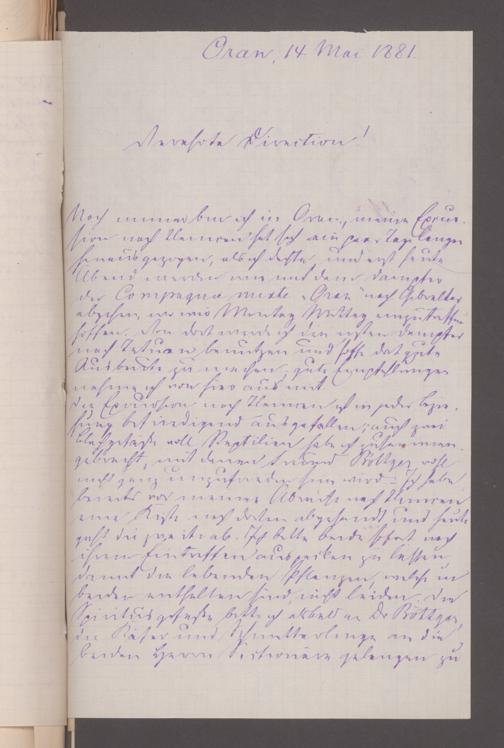 Oran, 14 Mai 1881.
Verehrte Direction!
Noch immer bin ich in Oran, meine Excur-
sion nach Tlemcen hat sich ein paar Tage länger
hinausgezogen, als ich dachte, und erst heute
Abend werden wir mit dem Dampfer
der Compagnie mixte „Oran" nach Gibraltar
abgehen, wo wir Montag Mittag einzutreffen
hoffen. Von dort werde ich den ersten Dampfer
nach Tetuan benutzen und hoffe dort gute
Ausbeute zu machen, gute Empfehlungen
nehme ich von hier aus mit.
Die Excursion nach Tlemcen ist in jeder Bezie-
hung befriedigend ausgefallen; auch zwei
Blechgefäße voll Reptilien habe ich
gebracht, mit denen Freund Böttger wohl
nicht ganz unzufrieden sein wird. Ich habe
bereits vor meiner Abreise nach Tlemcen
eine Kiste nach dorten abgesandt und heute
geht die zweite ab. Ich bitte beide sofort nach
ihrem Eintreffen auspacken zu lassen,
damit die lebenden Pflanzen, welche in
beiden enthalten sind, nicht leiden. Die
Spiritusgefäße bitte ich an Dr Böttger,
die Käfer und Schmetterlinge an die
beiden Herrn Sectionäre gelangen zu